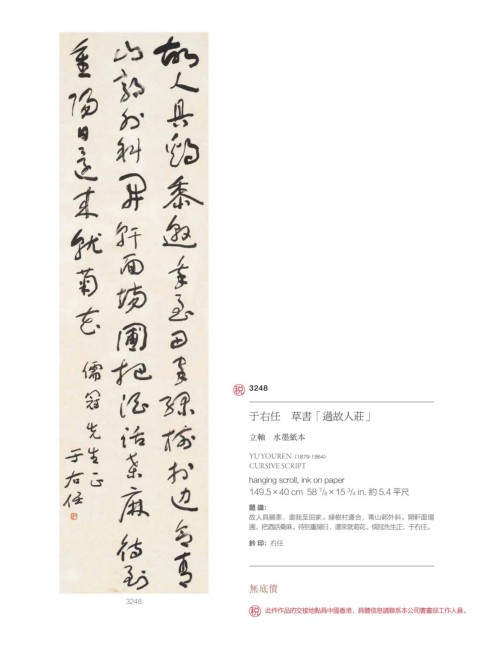 故人具鷄黍邀我至田家綠樹村边合青
山郭外斜開軒面場圃把酒話桑麻待到
重陽日還来就菊花
儒冠先生正
于右任
3248
税 3248
于右任 草書「過故人莊」
立軸 水墨紙本
YU YOUREN (1879-1964)
CURSIVE SCRIPT
hanging scroll, ink on paper
149.5 × 40 cm 58 7/8 × 15 3/4 in. 約 5.4 平尺
題識:
故人具雞黍，邀我至田家。綠樹村邊合，青山郭外斜。開軒面場
圃，把酒話桑麻。待到重陽日，還來就菊花。儒冠先生正，于右任。
鈐印：右任
無底價
税 此件作品的交接地點為中國香港，具體信息請聯系本公司書畫部工作人員。